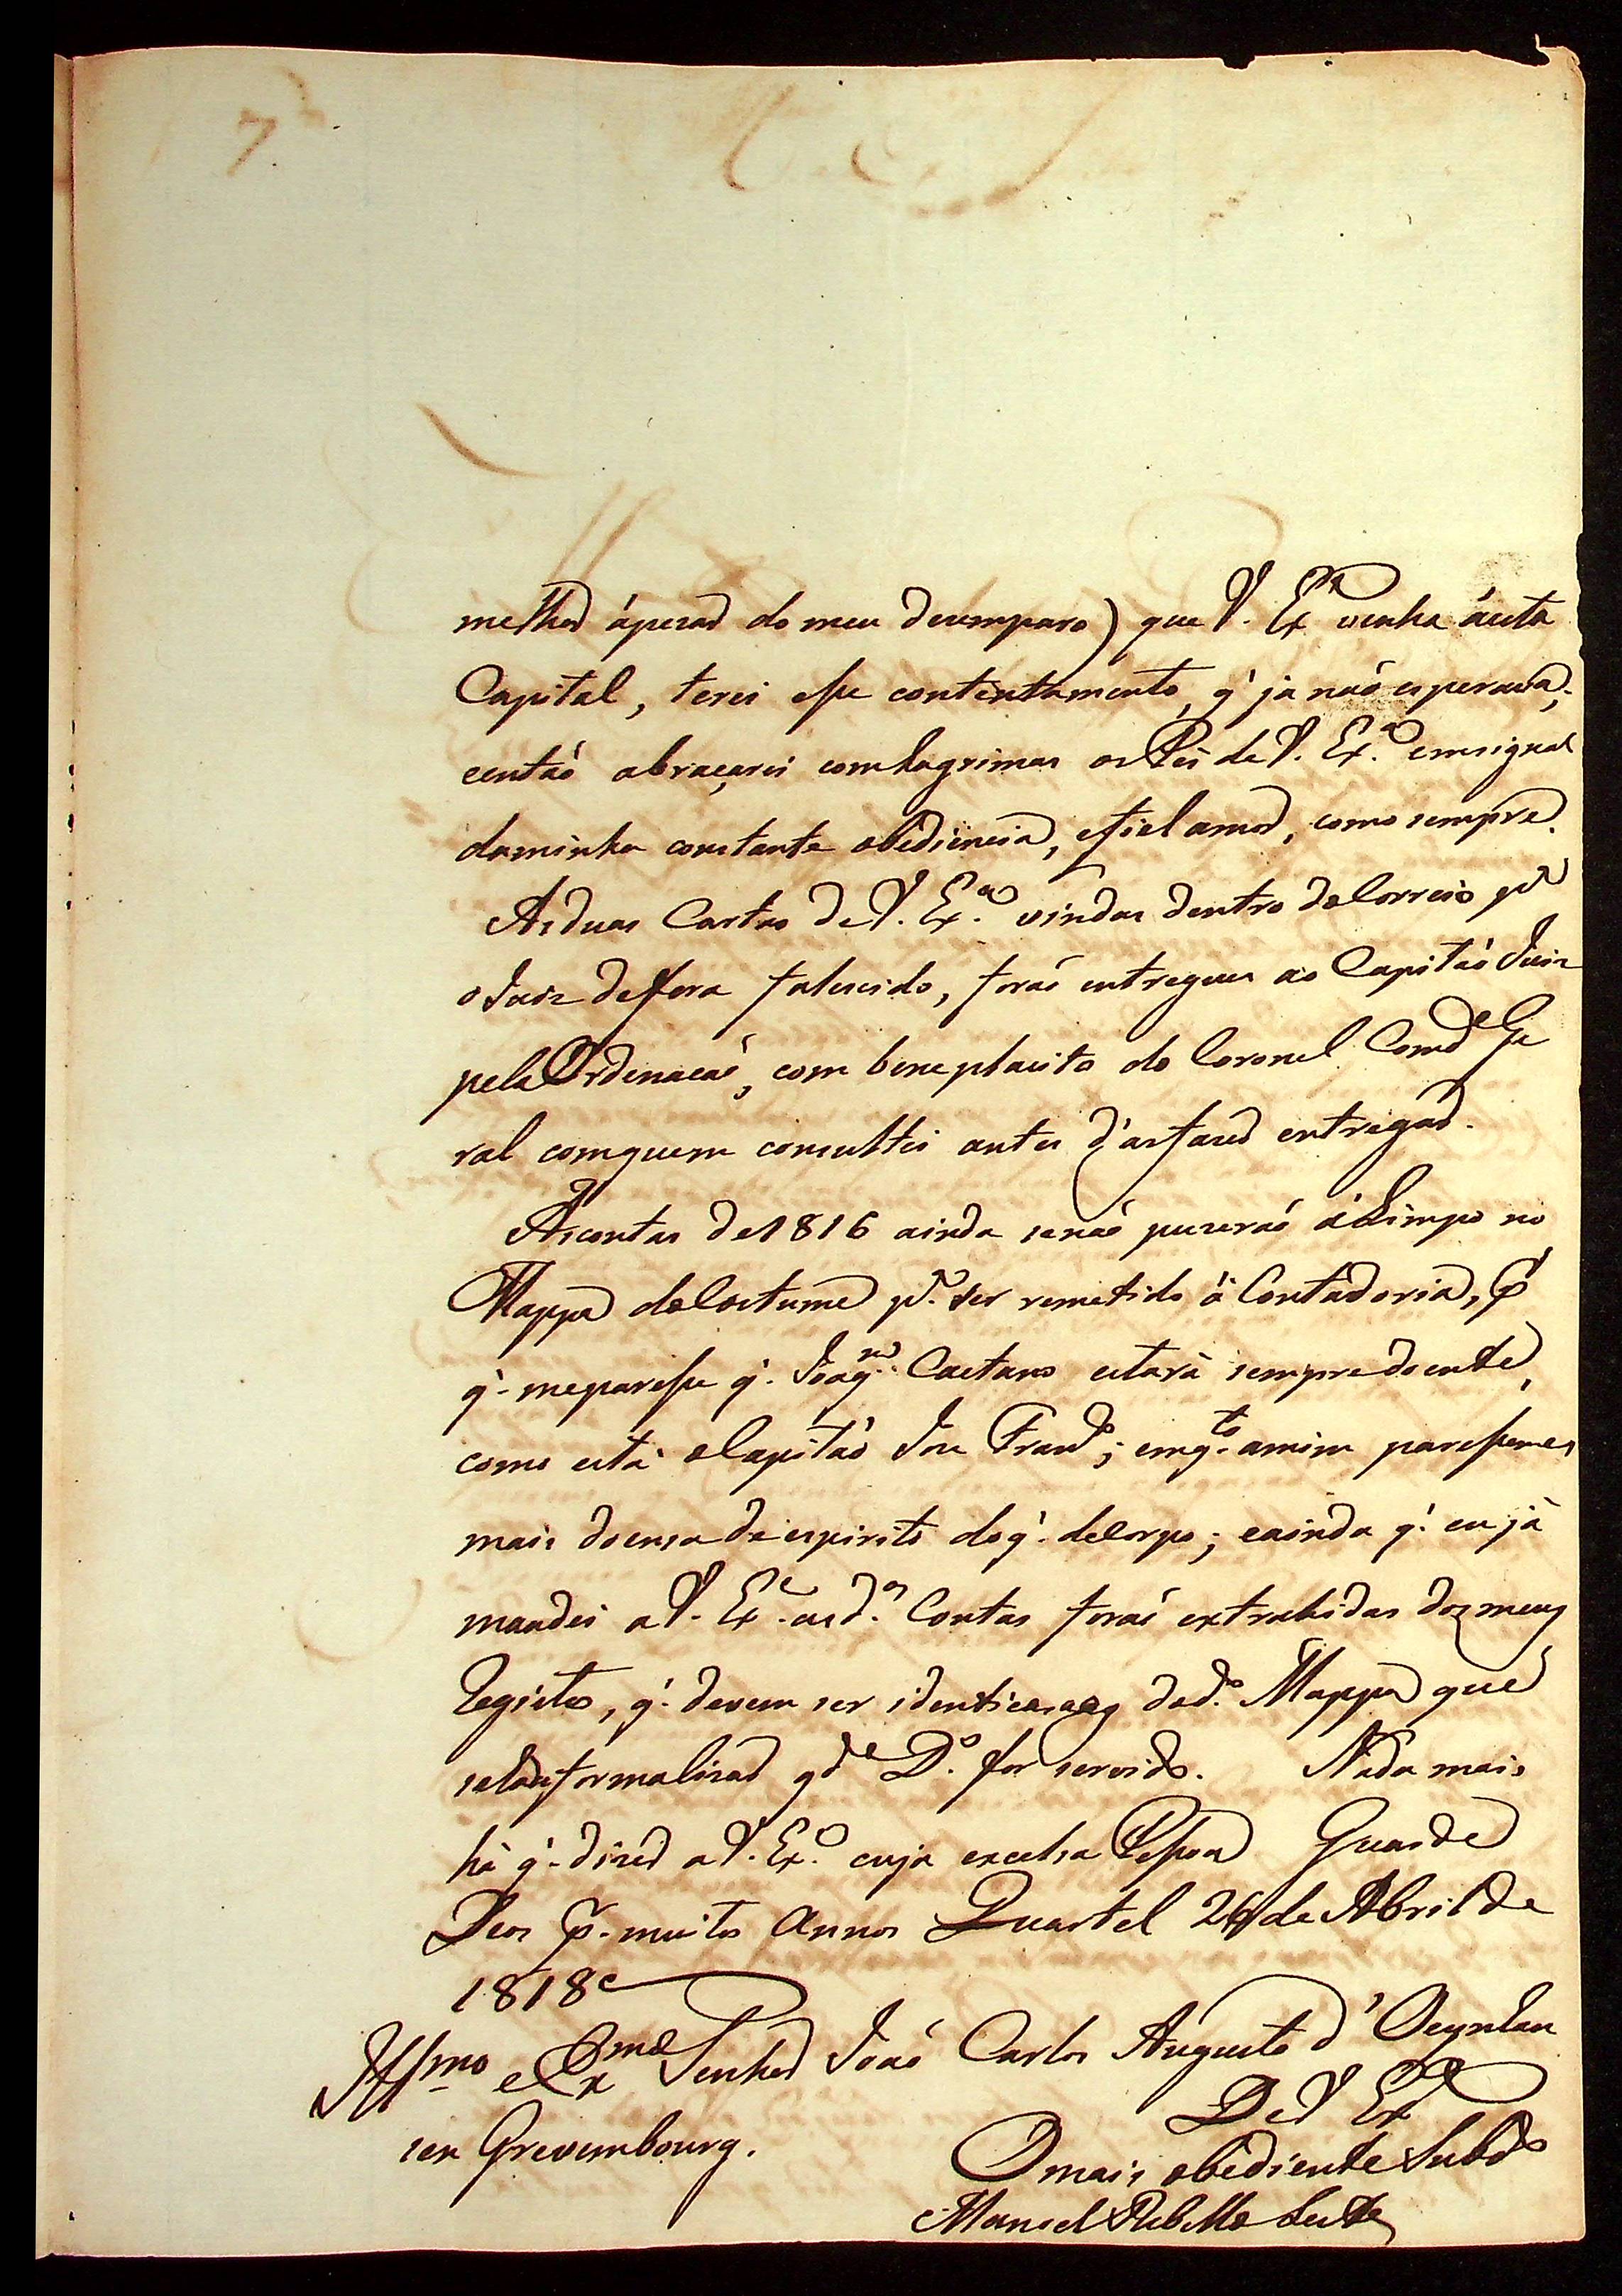 7
melhor ápezar do meu desemparo) que V. Exª venha áesta
Capital, terei esse contentamento, q' ja naõ esperava,
eentaõ abraçarei comlagrimas os Pés de V. Exª. emsignal
daminha constante obediencia, efiel amor, como sempre.
As duas Cartas de V. Exª. vindas dentro doCorreio pª
o Juiz defora falescido, foraõ entregues ao Capitaõ Juiz
pela Ordenaçaõ, com beneplacito do Coronel Comdᵉ Ge
ral comquem consultei antes d'asfazer entregar.
As contas de 1816 ainda senaõ puzeraõ áLimpo no
Mappa doCostume pª. ser remetido á Contadoria, p
q'. meparesse q'. Joaqᵐ. Caetano estará sempre doente,
como está oCapitaõ Joze Francº; emqᵗᵒ. amim paresseme
mais doensa de espirito doq'. deCorpo; eainda q'. eu já
mandei a V. Exª. as dᵃˢ Contas foraõ extrahidas dos meus
Registos, q'. devem ser identicas aos dodº. Mappa que
seha de formalizar qdᵉ D.ˢ for servido. Nada mais
há q'. dizer a V. Exª. cuja excelsa Pessoa Guarde
Deos pʳ. muitos Annos Quartel 26 de Abril de
1818
Illᵐᵒ e Exᵐᵒ Senhor Joaõ Carlos Augusto d'Oeynhau
sen Grevembourg.
De V. Exª
O mais obediente Subdº
Manoel Rebello Leite